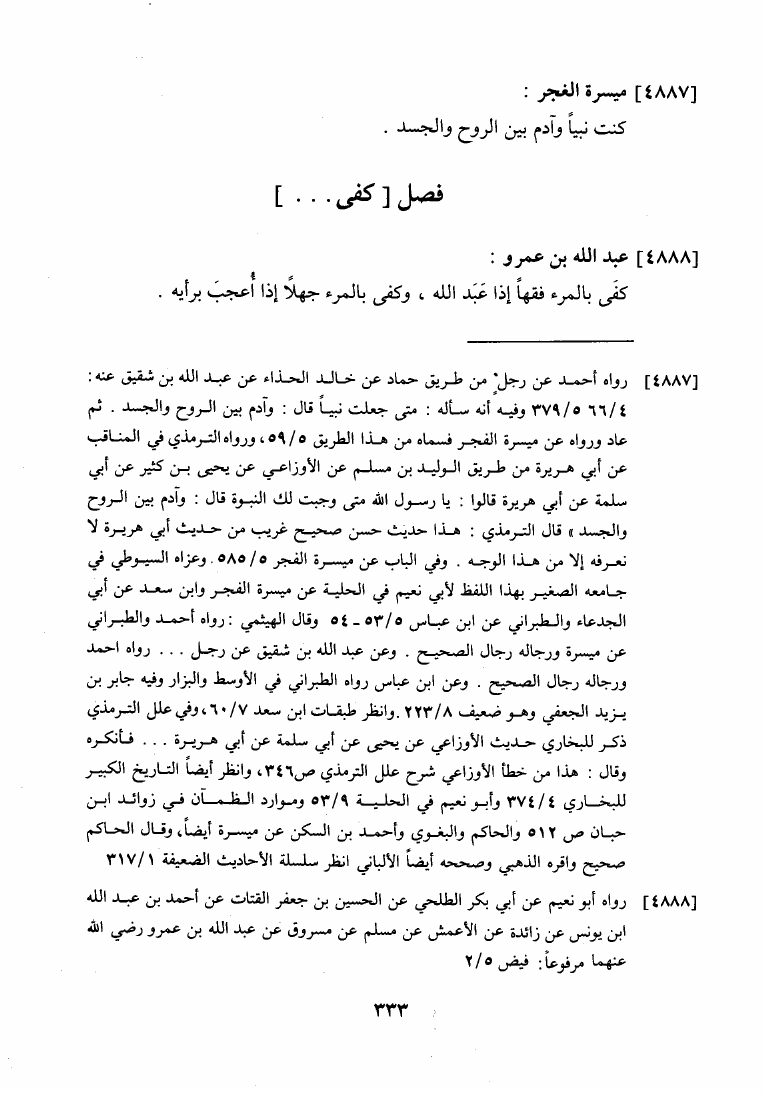 [٤٨٨٧] ميسرة الفجر :
كنت نبياً وآدم بين الروح والجسد .
فصل [ كفى . . . ]
[٤٨٨٨] عبد الله بن عمرو :
كفَى بالمرء فقهاً إذا عَبَد الله ، وكفى بالمرء جهلاً إذا أُعجبَ برأيه .
[٤٨٨٧] رواه أحمد عن رجلٍ من طريق حماد عن خالد الحذاء عن عبد الله بن شقيق عنه :
٦٦/٤ ٣٧٩/٥ وفيه أنه سأله : متى جعلت نبياً قال : وآدم بين الروح والجسد . ثم
عاد ورواه عن ميسرة الفجر فسماه من هذا الطريق ٥٩/٥، ورواه الترمذي في المناقب
عن أبي هريرة من طريق الوليد بن مسلم عن الأوزاعي عن يحيى بن كثير عن أبي
سلمة عن أبي هريرة قالوا : يا رسول الله متى وجبت لك النبوة قال : وآدم بين الروح
والجسد » قال الترمذي : هذا حديث حسن صحيح غريب من حديث أبي هريرة لا
نعرفه إلا من هذا الوجه . وفي الباب عن ميسرة الفجر ٥٨٥/٥ . وعزاه السيوطي في
جامعه الصغير بهذا اللفظ لأبي نعيم في الحلية عن ميسرة الفجر وابن سعد عن أبي
الجدعاء والطبراني عن ابن عباس ٥٣/٥ ـ ٥٤ وقال الهيثمي : رواه أحمد والطبراني
عن ميسرة ورجاله رجال الصحيح . وعن عبد الله بن شقيق عن رجل . . . رواه احمد
ورجاله رجال الصحيح . وعن ابن عباس رواه الطبراني في الأوسط والبزار وفيه جابر بن
يزيد الجعفي وهو ضعيف ٢٢٣/٨ . وانظر طبقات ابن سعد ٦٠/٧، وفي علل الترمذي
ذكر للبخاري حديث الأوزاعي عن يحيى عن أبي سلمة عن أبي هريرة . . . فأنكره
وقال : هذا من خطأ الأوزاعي شرح علل الترمذي ص٣٤٦، وانظر أيضاً التاريخ الكبير
للبخاري ٣٧٤/٤ وأبو نعيم في الحلية ٥٣/٩ وموارد الظمآن في زوائد ابن
حبان ص ٥١٢ والحاكم والبغوي وأحمد بن السكن عن ميسرة أيضاً، وقال الحاكم
صحيح واقره الذهبي وصححه أيضاً الألباني انظر سلسلة الأحاديث الضعيفة ٣١٧/١
[٤٨٨٨] رواه أبو نعيم عن أبي بكر الطلحي عن الحسين بن جعفر القتات عن أحمد بن عبد الله
ابن يونس عن زائدة عن الأعمش عن مسلم عن مسروق عن عبد الله بن عمرو رضي الله
عنهما مرفوعاً : فيض ٢/٥
٣٣٣